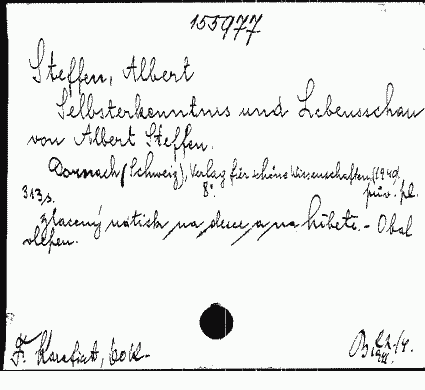 155977
Steffen, Albert
Selbsterkenntnis und Lebensschau
von Albert Steffen.
Dornach (Schweiz), Verlag für schöne Wissenschaften, (1940.
313 s. 8°. pův. pl.
zlacený nátisk na desce a na hřbetě. - Obal
vlepen.
Karafiát,